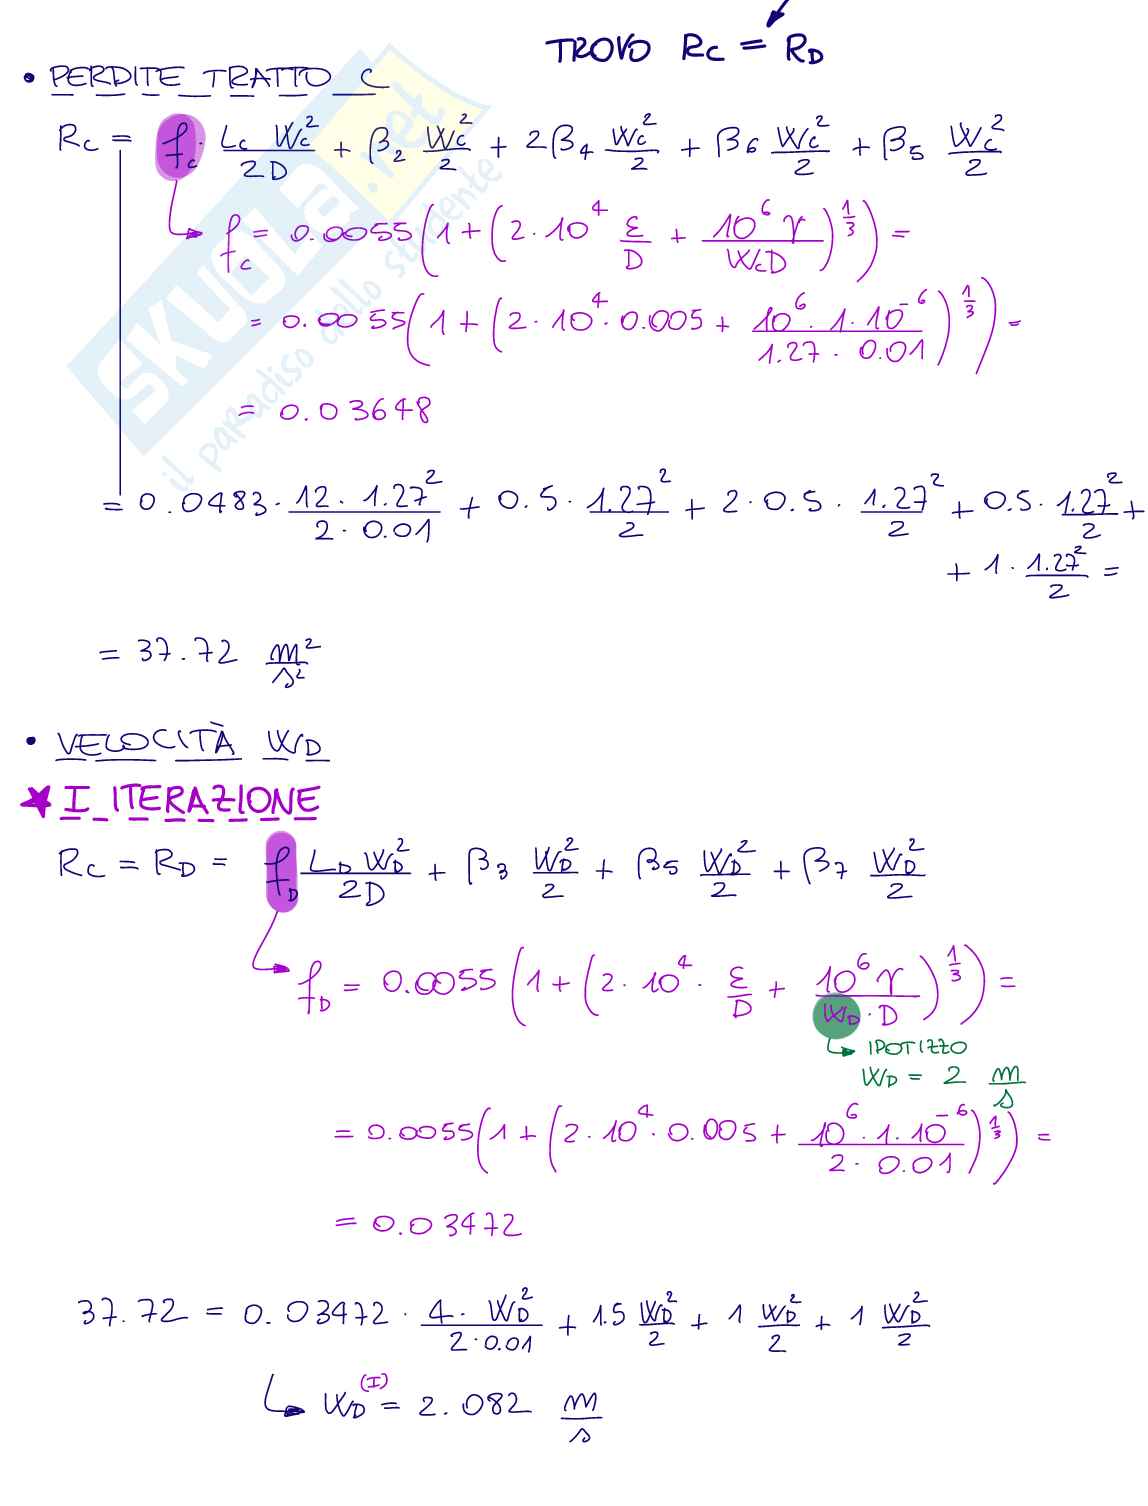 TROVO Rc = R_D
• PERDITE TRATTO C
Rc = f_c · (Lc Wc²)/(2D) + β₂ Wc²/2 + 2β₄ Wc²/2 + β₆ Wc²/2 + β₅ Wc²/2
f_c = 0.0055(1+(2·10⁴ ε/D + 10⁶ γ/(WcD))^(1/3)) =
= 0.0055(1+(2·10⁴·0.005 + (10⁶·1·10⁻⁶)/(1.27·0.01))^(1/3)) =
= 0.03648
= 0.0483 · (12·1.27²)/(2·0.01) + 0.5 · 1.27²/2 + 2·0.5 · 1.27²/2 + 0.5 · 1.27²/2 +
+ 1 · 1.27²/2 =
= 37.72 m²/s²
• VELOCITÀ W_D
★ I ITERAZIONE
Rc = R_D = f_D (L_D W_D²)/(2D) + β₃ W_D²/2 + β₅ W_D²/2 + β₇ W_D²/2
f_D = 0.0055 (1+(2·10⁴ · ε/D + 10⁶ γ/(W_D·D))^(1/3)) =
IPOTIZZO
W_D = 2 m/s
= 0.0055(1+(2·10⁴·0.005 + (10⁶·1·10⁻⁶)/(2·0.01))^(1/3)) =
= 0.03472
37.72 = 0.03472 · (4·W_D²)/(2·0.01) + 1.5 W_D²/2 + 1 W_D²/2 + 1 W_D²/2
W_D^(I) = 2.082 m/s
SKUOLA.net
il paradiso dello studente